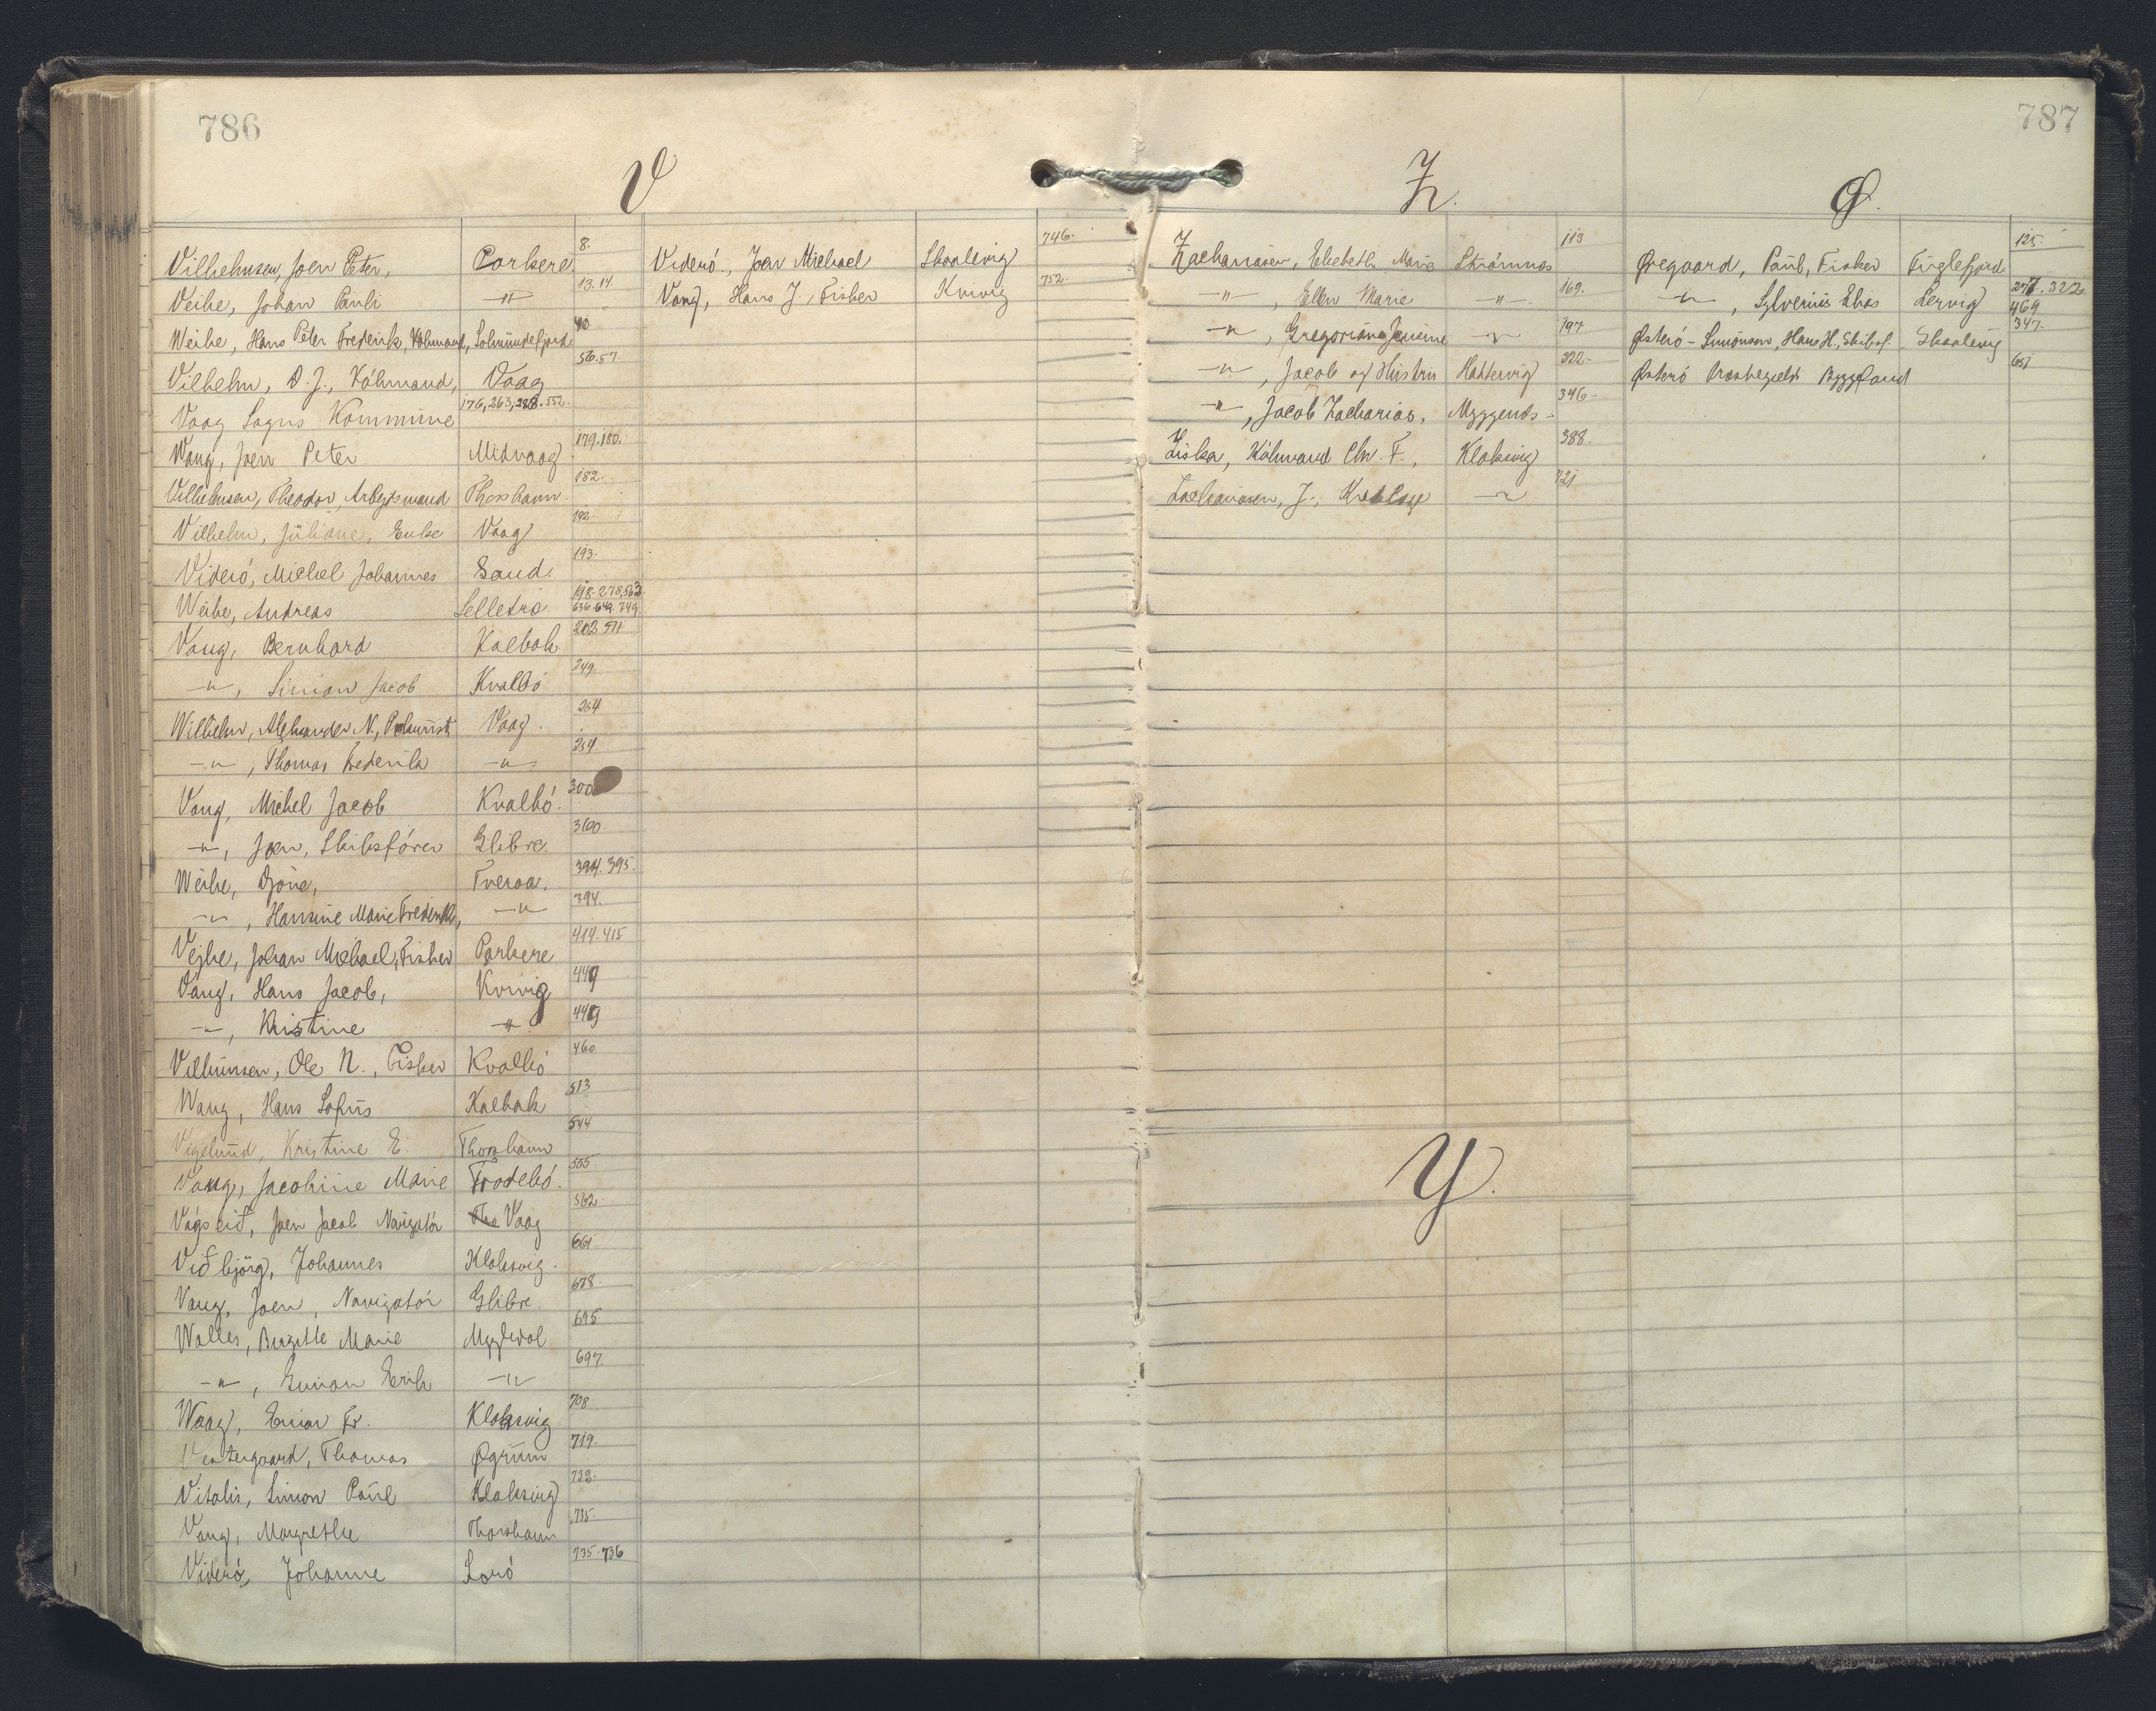 786
V
Vilhelmsen, Joen Peter, Porkere. 8.
Veihe, Johan Pauli —"— 13.14.
Weihe, Hans Peter Frederik, Købmand, Solmundefjord. 40
Vilhelm, D. J., Købmand, Vaag 56.57.
Vaag Sogns Kommune 176, 263, 288. 552.
Wang, Joen Peter Midvaag 179.180.
Vilhelmsen, Theodor, Arbejdsmand Thorshavn 182.
Vilhelm, Juliane, Enke Vaag 192.
Viderö, Michel Johannes Sand. 193.
Weihe, Andreas Selletræ 198.278,563 636.649.749.
Vang, Bernhard Kaldbak 202 511
—"—, Simon Jacob Kvalbö 249.
Wilhelm, Aleksander N., Vaag. 264
—"—, Thomas Frederik —"— 254.
Vang, Michel Jacob Kvalbö. 300
—"—, Joen, Skibsförer Glibre. 360.
Weihe, Tveraa. 394. 395.
—"—, Hansine Marie Frederikke, —"— 394.
Vejhe, Johan Michael, Fisker Porkere 414.415
Vang, Hans Jacob, Kvivig 449
—"—, Kristine —"— 449
Vilhelmsen, Ole N., Fisker Kvalbö 460.
Wang, Hans Sofus Kalbak 513
Vigelund, Kristine E. Thorshavn 544
Vang, Jacobine Marie Frodebö. 555
Vágseið, Joen Jacob Navigatör Vaag 562.
Viðbjörg, Johannes Klaksvig. 661.
Vang, Joen, Navigatör Glibre. 678.
Walles, Birgitte Marie Mygledal 695.
—"—, Simon Erik —"— 697.
Waag, Einar Fr. Klaksvig 708
Vestergaard, Thomas Øgrum 719.
Vitalis, Simon Paul Klaksvig 722.
Vang, Margrethe Thorshavn 735.
Viderö, Johanne Lorö 735.736
Viderö., Joen Michael Skaalevig 746.
Vang, Hans J., Fisker Kvivig 752.
787
Z.
Zachariasen, Elsebeth Marie Strömnæs 113
—"—, Ellen Marie —"— 169.
—"—, Gregoriane Jensine —"— 197
—"—, Jacob og Hustru Hattervig 222.
—"—, Jacob Zacharias, Myggenæs. 346.
Ziska, Köbmand Chr. F., Klaksvig 388.
Zachariasen, J., —"— 721
Y.
Ø.
Øregaard, Paul, Fisker Fuglefjord 125.
—"—, Sylverius Elias Lervig 277.322 469
Österö-Simonsen, Hans H., Skibsf. Skaalevig 347.
Österö Præstegjelds Byggefond 651